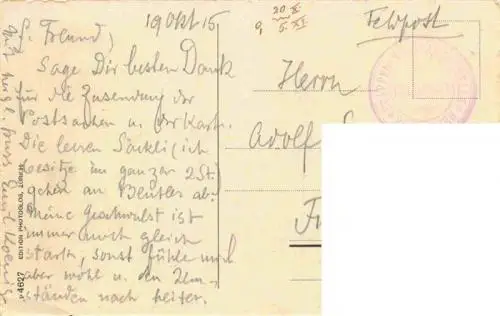 19 Okt 15
L. Freund,
Sage Dir besten Dank
für die Zusendung der
Postsachen u. der Kart.
Die leeren Säckli (ich
besitze im ganzen 2 St.
gehen an Beutler ab.
Meine Geschwulst ist
immer noch gleich
stark, sonst fühle mich
aber wohl u. den Um-
ständen nach heiter.
Mit herzl. Gruss Emil
20 X
5. XI
Feldpost
Herrn
Adolf
P4627 EDITION PHOTOGLOB, ZÜRICH